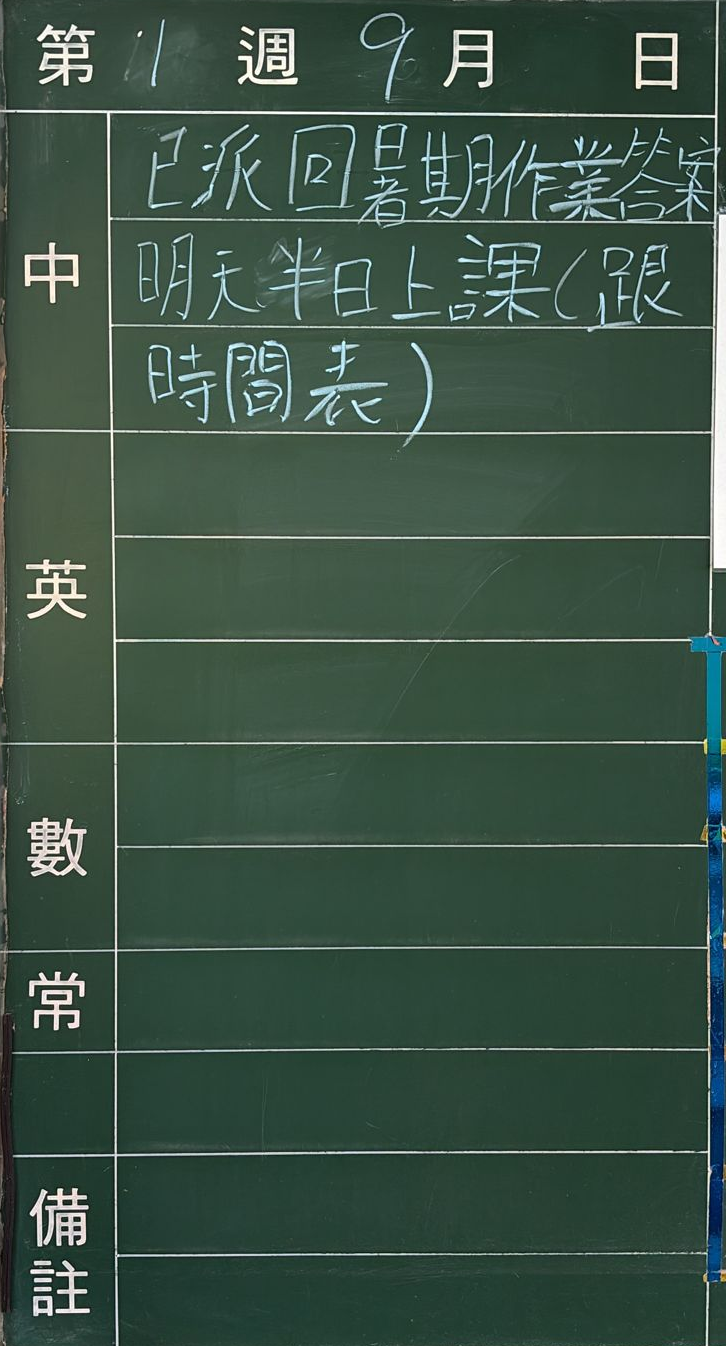 第 1 週 9 月 日
中
已派回暑期作業答案
明天半日上課(跟
時間表)
英
數
常
備註